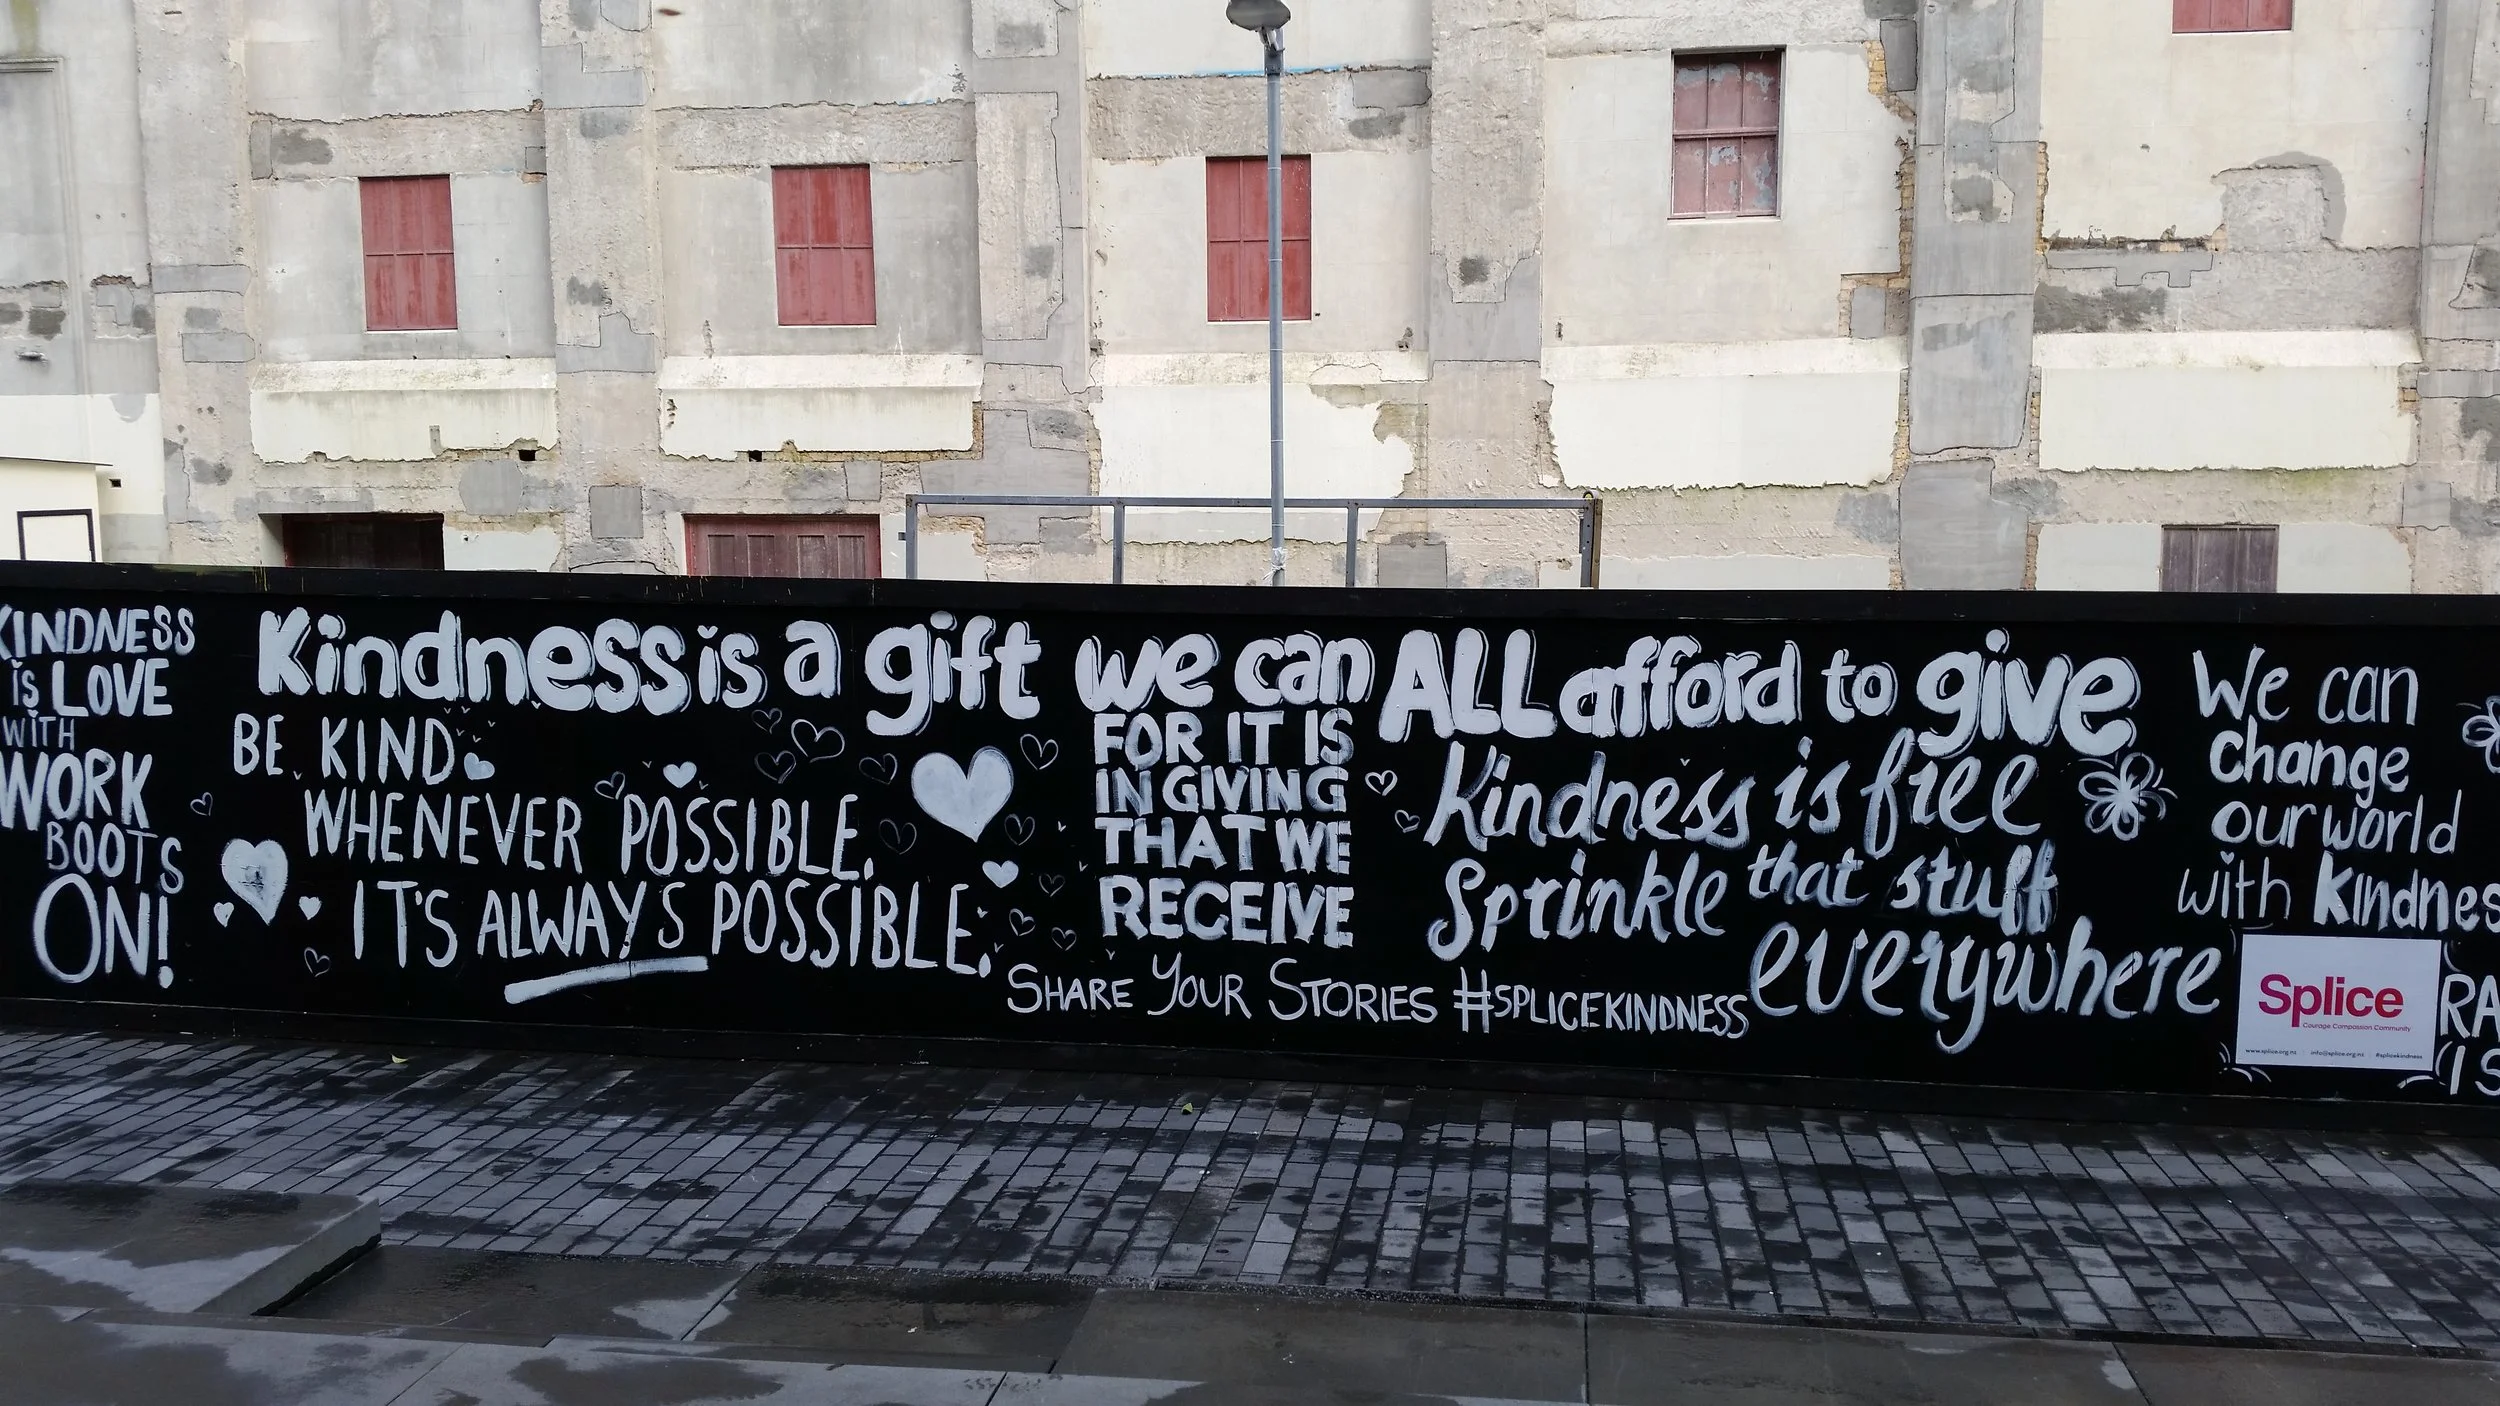 KINDNESS
IS LOVE
WITH
WORK
BOOTS
ON!
Kindness is a gift we can ALL afford to give
BE KIND
WHENEVER POSSIBLE.
IT'S ALWAYS POSSIBLE.
FOR IT IS
IN GIVING
THAT WE
RECEIVE
SHARE YOUR STORIES #SPLICEKINDNESS
Kindness is free
Sprinkle that stuff
everywhere
We can
change
our world
with Kindnes
Splice
Courage Compassion Community
www.splice.org.nz | info@splice.org.nz | #splicekindness
RA
(IS